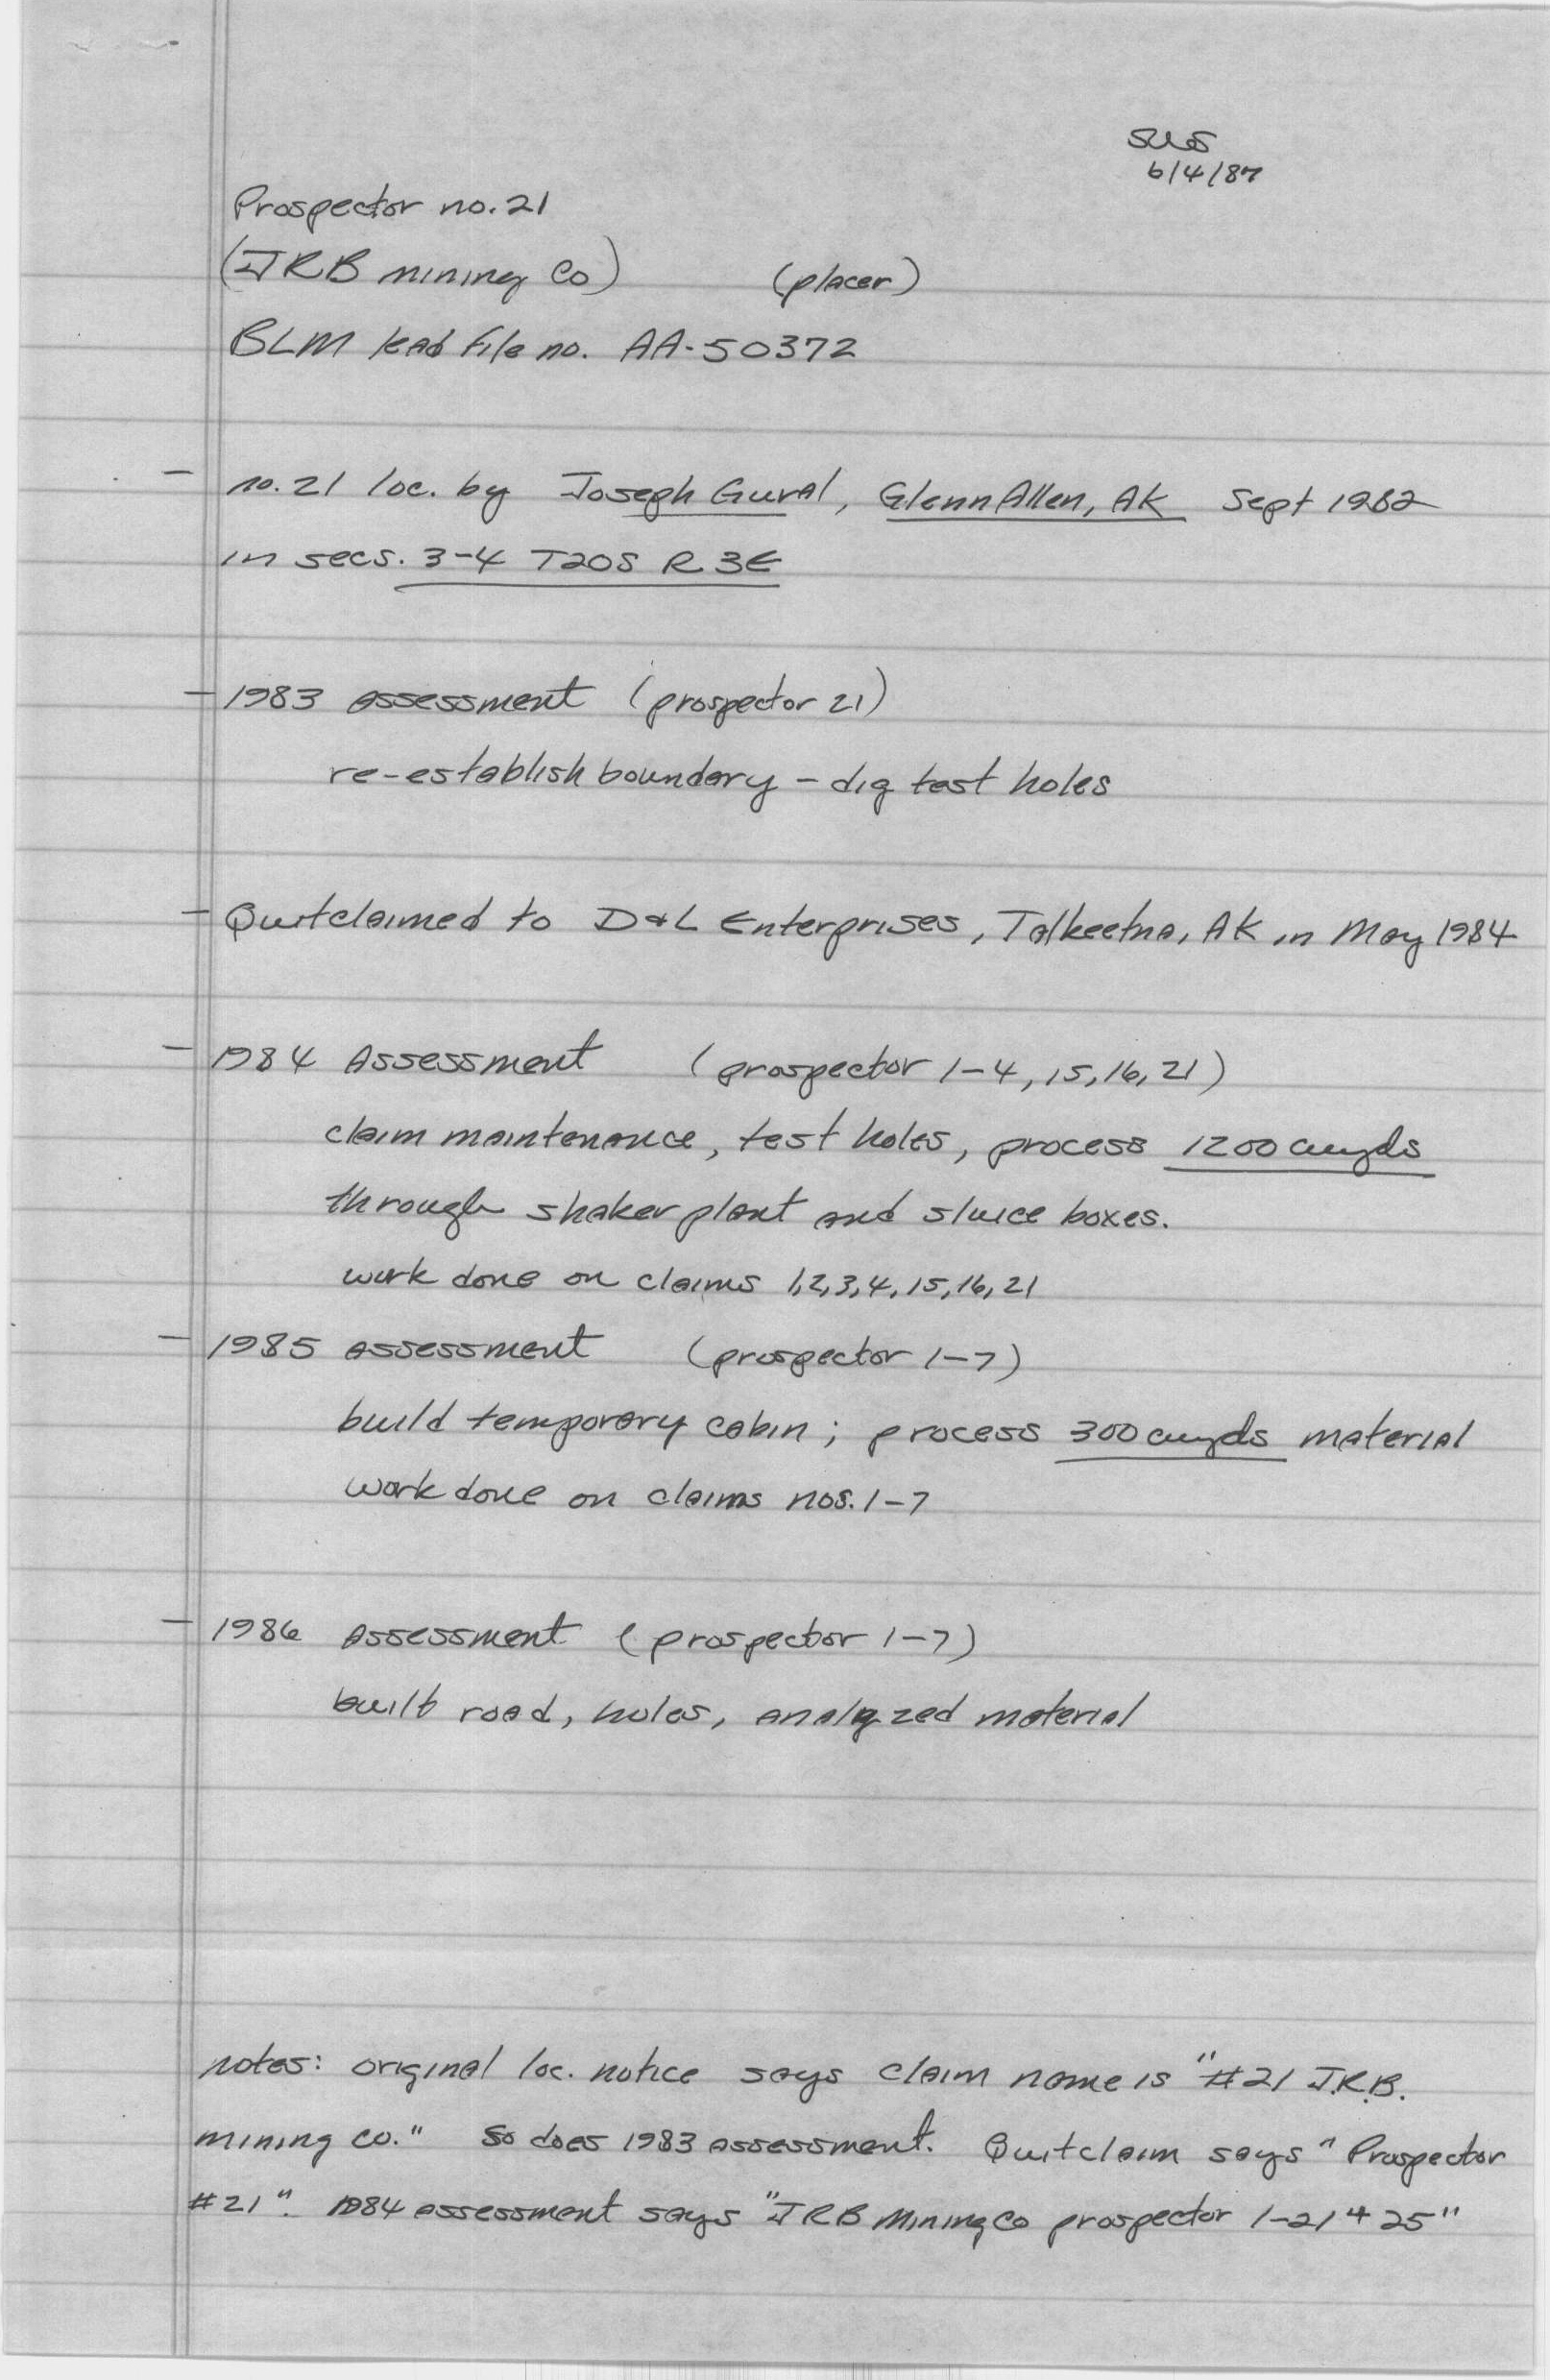 6/4/87
Prospector no. 21
(JRB mining Co) (placer)
BLM lead file no. AA-50372
- no. 21 loc. by Joseph Gural, GlennAllen, AK Sept 1982
in secs. 3-4 T20S R 3E
- 1983 assessment (prospector 21)
re-establish boundary - dig test holes
- Quitclaimed to D&L Enterprises, Talkeetna, AK in May 1984
- 1984 Assessment (prospector 1-4, 15, 16, 21)
claim maintenance, test holes, process 1200 cu yds
through shaker plant and sluice boxes.
work done on claims 1,2,3,4,15,16,21
- 1985 assessment (prospector 1-7)
build temporary cabin; process 300 cu yds material
work done on claims nos. 1-7
- 1986 Assessment (prospector 1-7)
built road, holes, analyzed material
notes: original loc. notice says claim name is "#21 J.R.B.
mining co." So does 1983 assessment. Quitclaim says "Prospector
#21". 1984 assessment says "JRB Mining Co prospector 1-21 + 25"